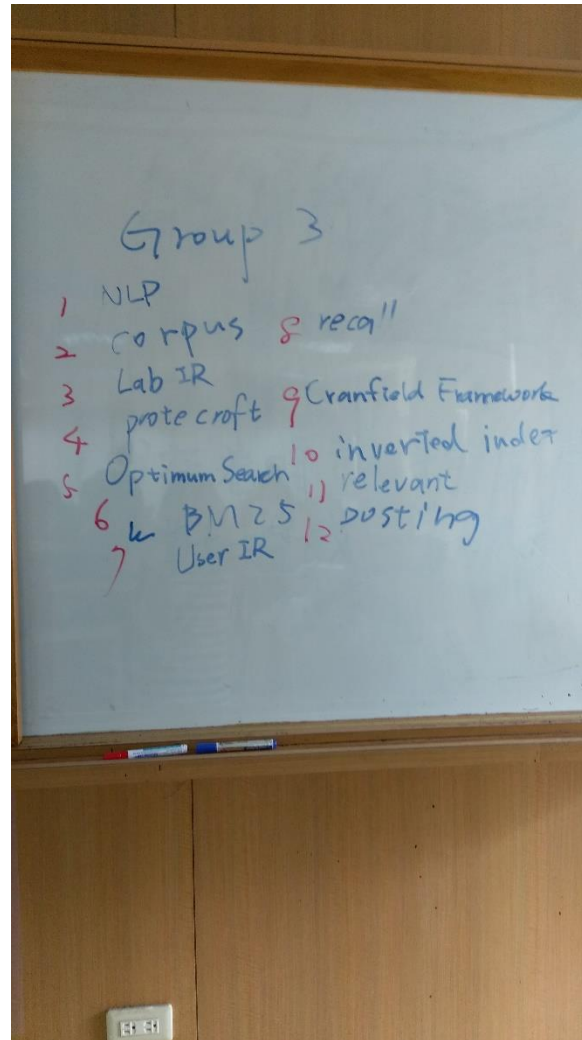 Group 3
1 NLP
2 corpus
3 Lab IR
4 protecroft
5 Optimum Search
6 BM25
7 User IR
8 recall
9 Cranfield Framework
10 inverted index
11 relevant
12 posting